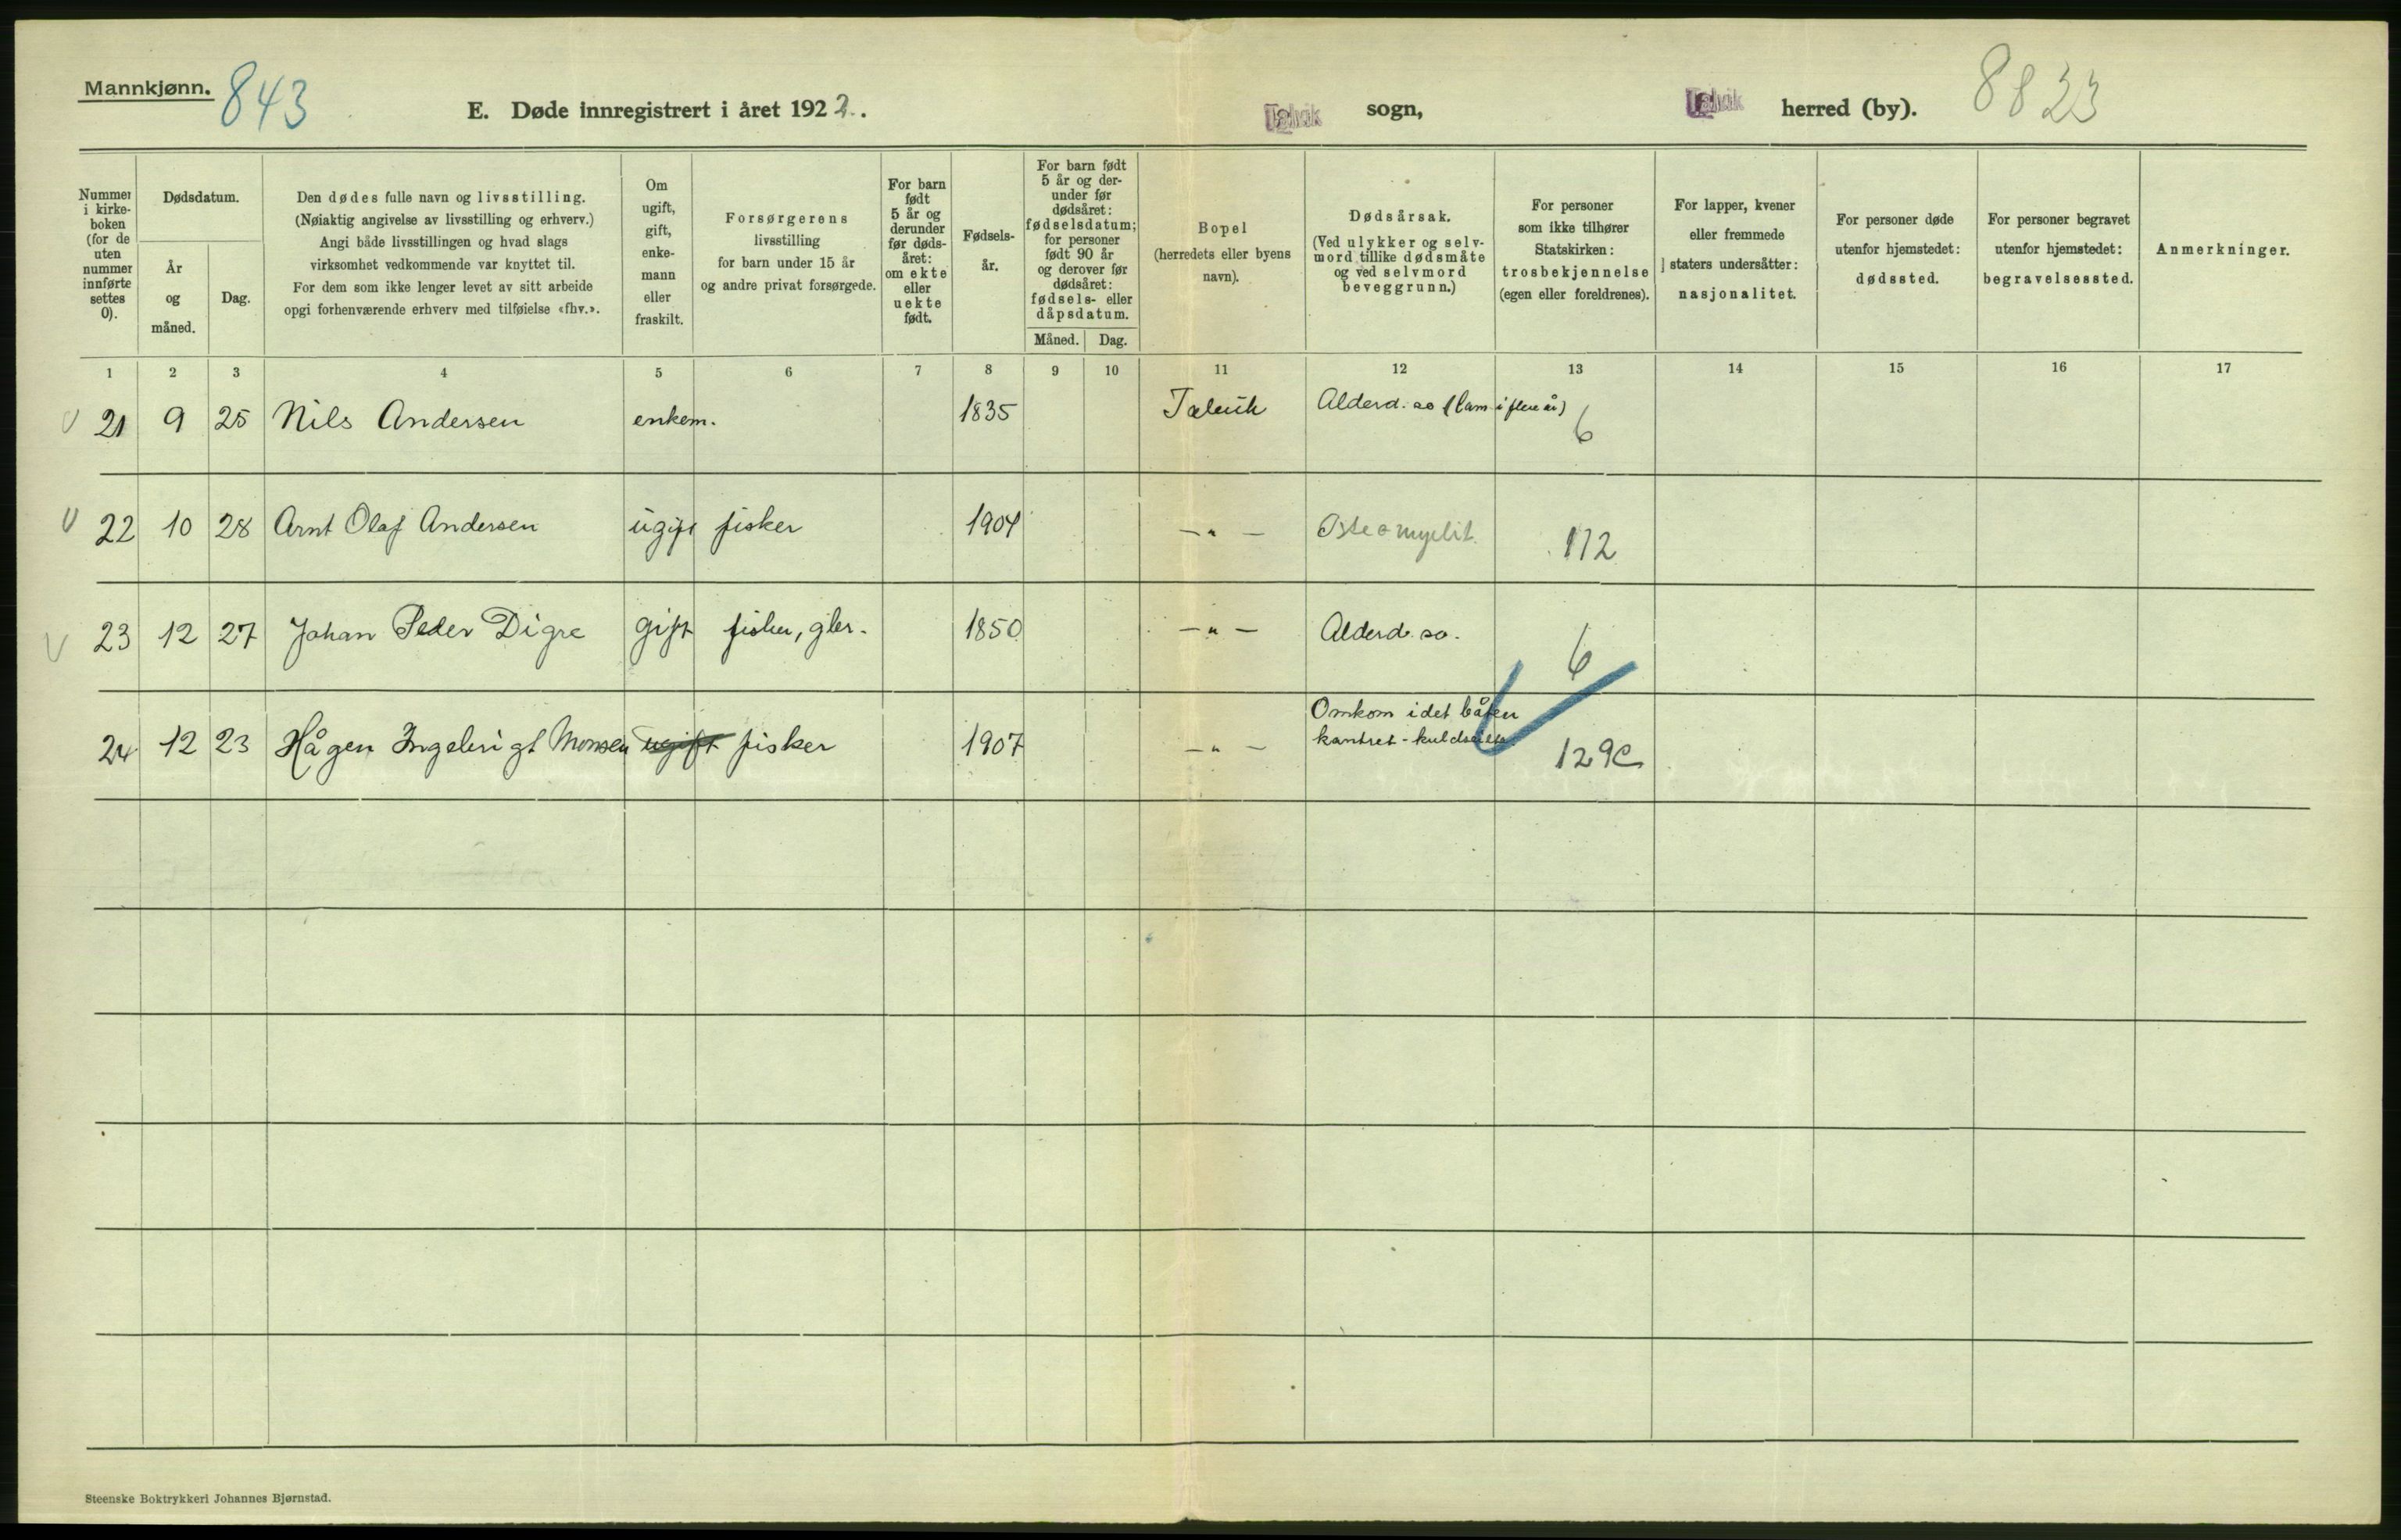 Mannkjønn. 843
E. Døde innregistrert i året 1922.
Talvik sogn, Talvik herred (by). 8823
Nummer i kirkeboken (for de uten nummer innførte settes 0).
Dødsdatum.
År og måned.
Dag.
Den dødes fulle navn og livsstilling.
(Nøiaktig angivelse av livsstilling og erhverv.)
Angi både livsstillingen og hvad slags
virksomhet vedkommende var knyttet til.
For dem som ikke lenger levet av sitt arbeide
opgi forhenværende erhverv med tilføielse «fhv.».
Om ugift, gift, enkemann eller fraskilt.
Forsørgerens
livsstilling
for barn under 15 år
og andre privat forsørgede.
For barn født 5 år og derunder før dødsåret: om ekte eller uekte født.
Fødselsår.
For barn født 5 år og derunder før dødsåret: fødselsdatum; for personer født 90 år og derover før dødsåret: fødsels- eller dåpsdatum.
Måned. Dag.
Bopel
(herredets eller byens
navn).
Dødsårsak.
(Ved ulykker og selvmord tillike dødsmåte og ved selvmord beveggrunn.)
For personer
som ikke tilhører
Statskirken:
trosbekjennelse
(egen eller foreldrenes).
For lapper, kvener
eller fremmede
staters undersåtter:
nasjonalitet.
For personer døde
utenfor hjemstedet:
dødssted.
For personer begravet
utenfor hjemstedet:
begravelsessted.
Anmerkninger.
1 2 3 4 5 6 7 8 9 10 11 12 13 14 15 16 17
21 9 25 Nils Andersen enkem. 1835 Talvik Alderd. so (lam i flere år) 6
22 10 28 Arnt Olaf Andersen ugift fisker 1904 -"- Osteomyelit. 112
23 12 27 Johan Peder Digre gift fisker, gbr. 1850 -"- Alderd. so. 6
24 12 23 Hågen Ingebrigt Monsen ugift fisker 1907 -"- Omkom idet båten
kantret - 129c
Steenske Boktrykkeri Johannes Bjørnstad.